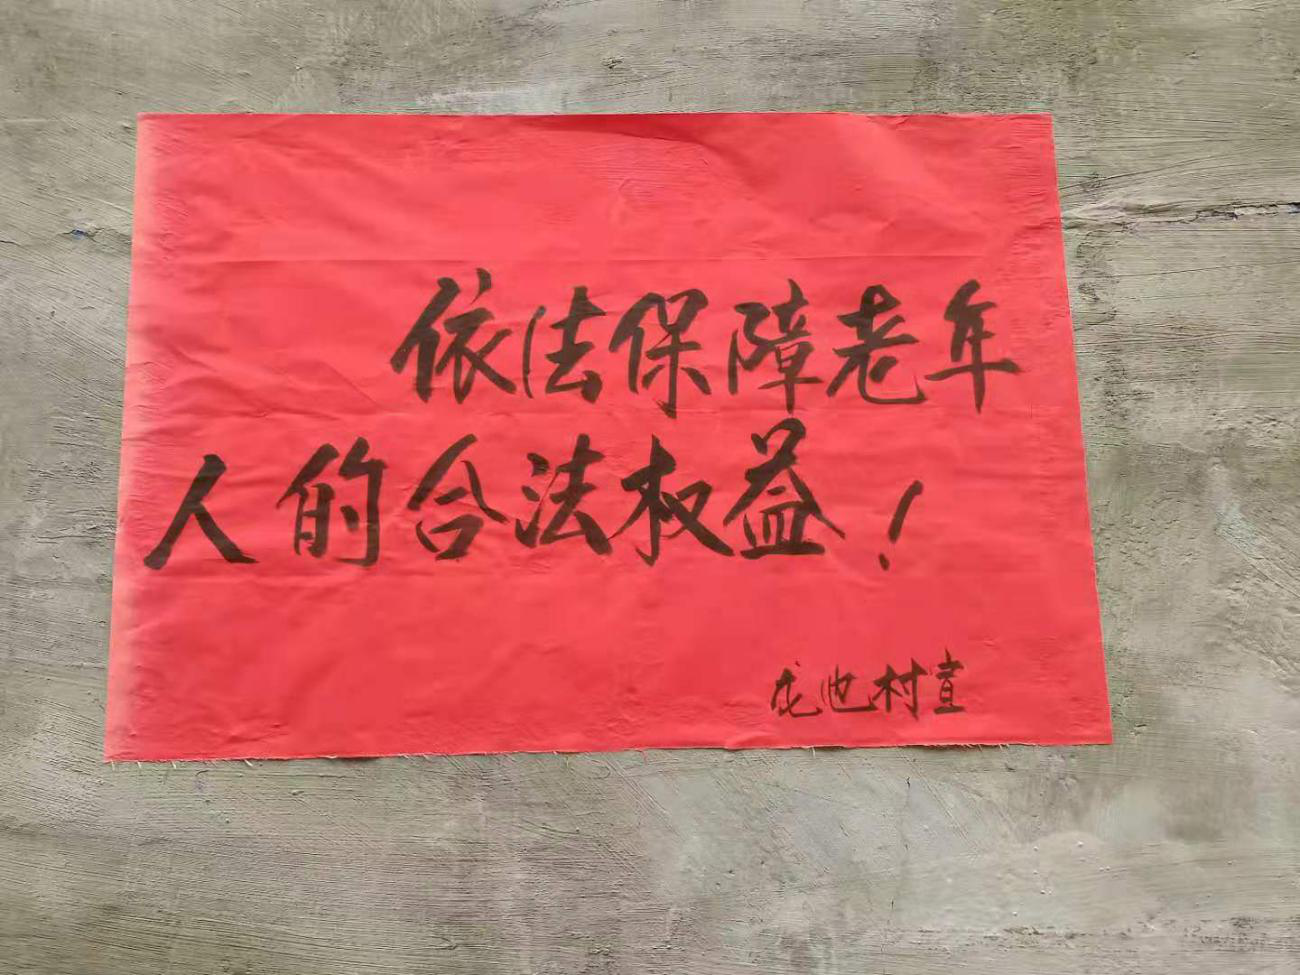 依法保障老年
人的合法权益！
龙池村宣